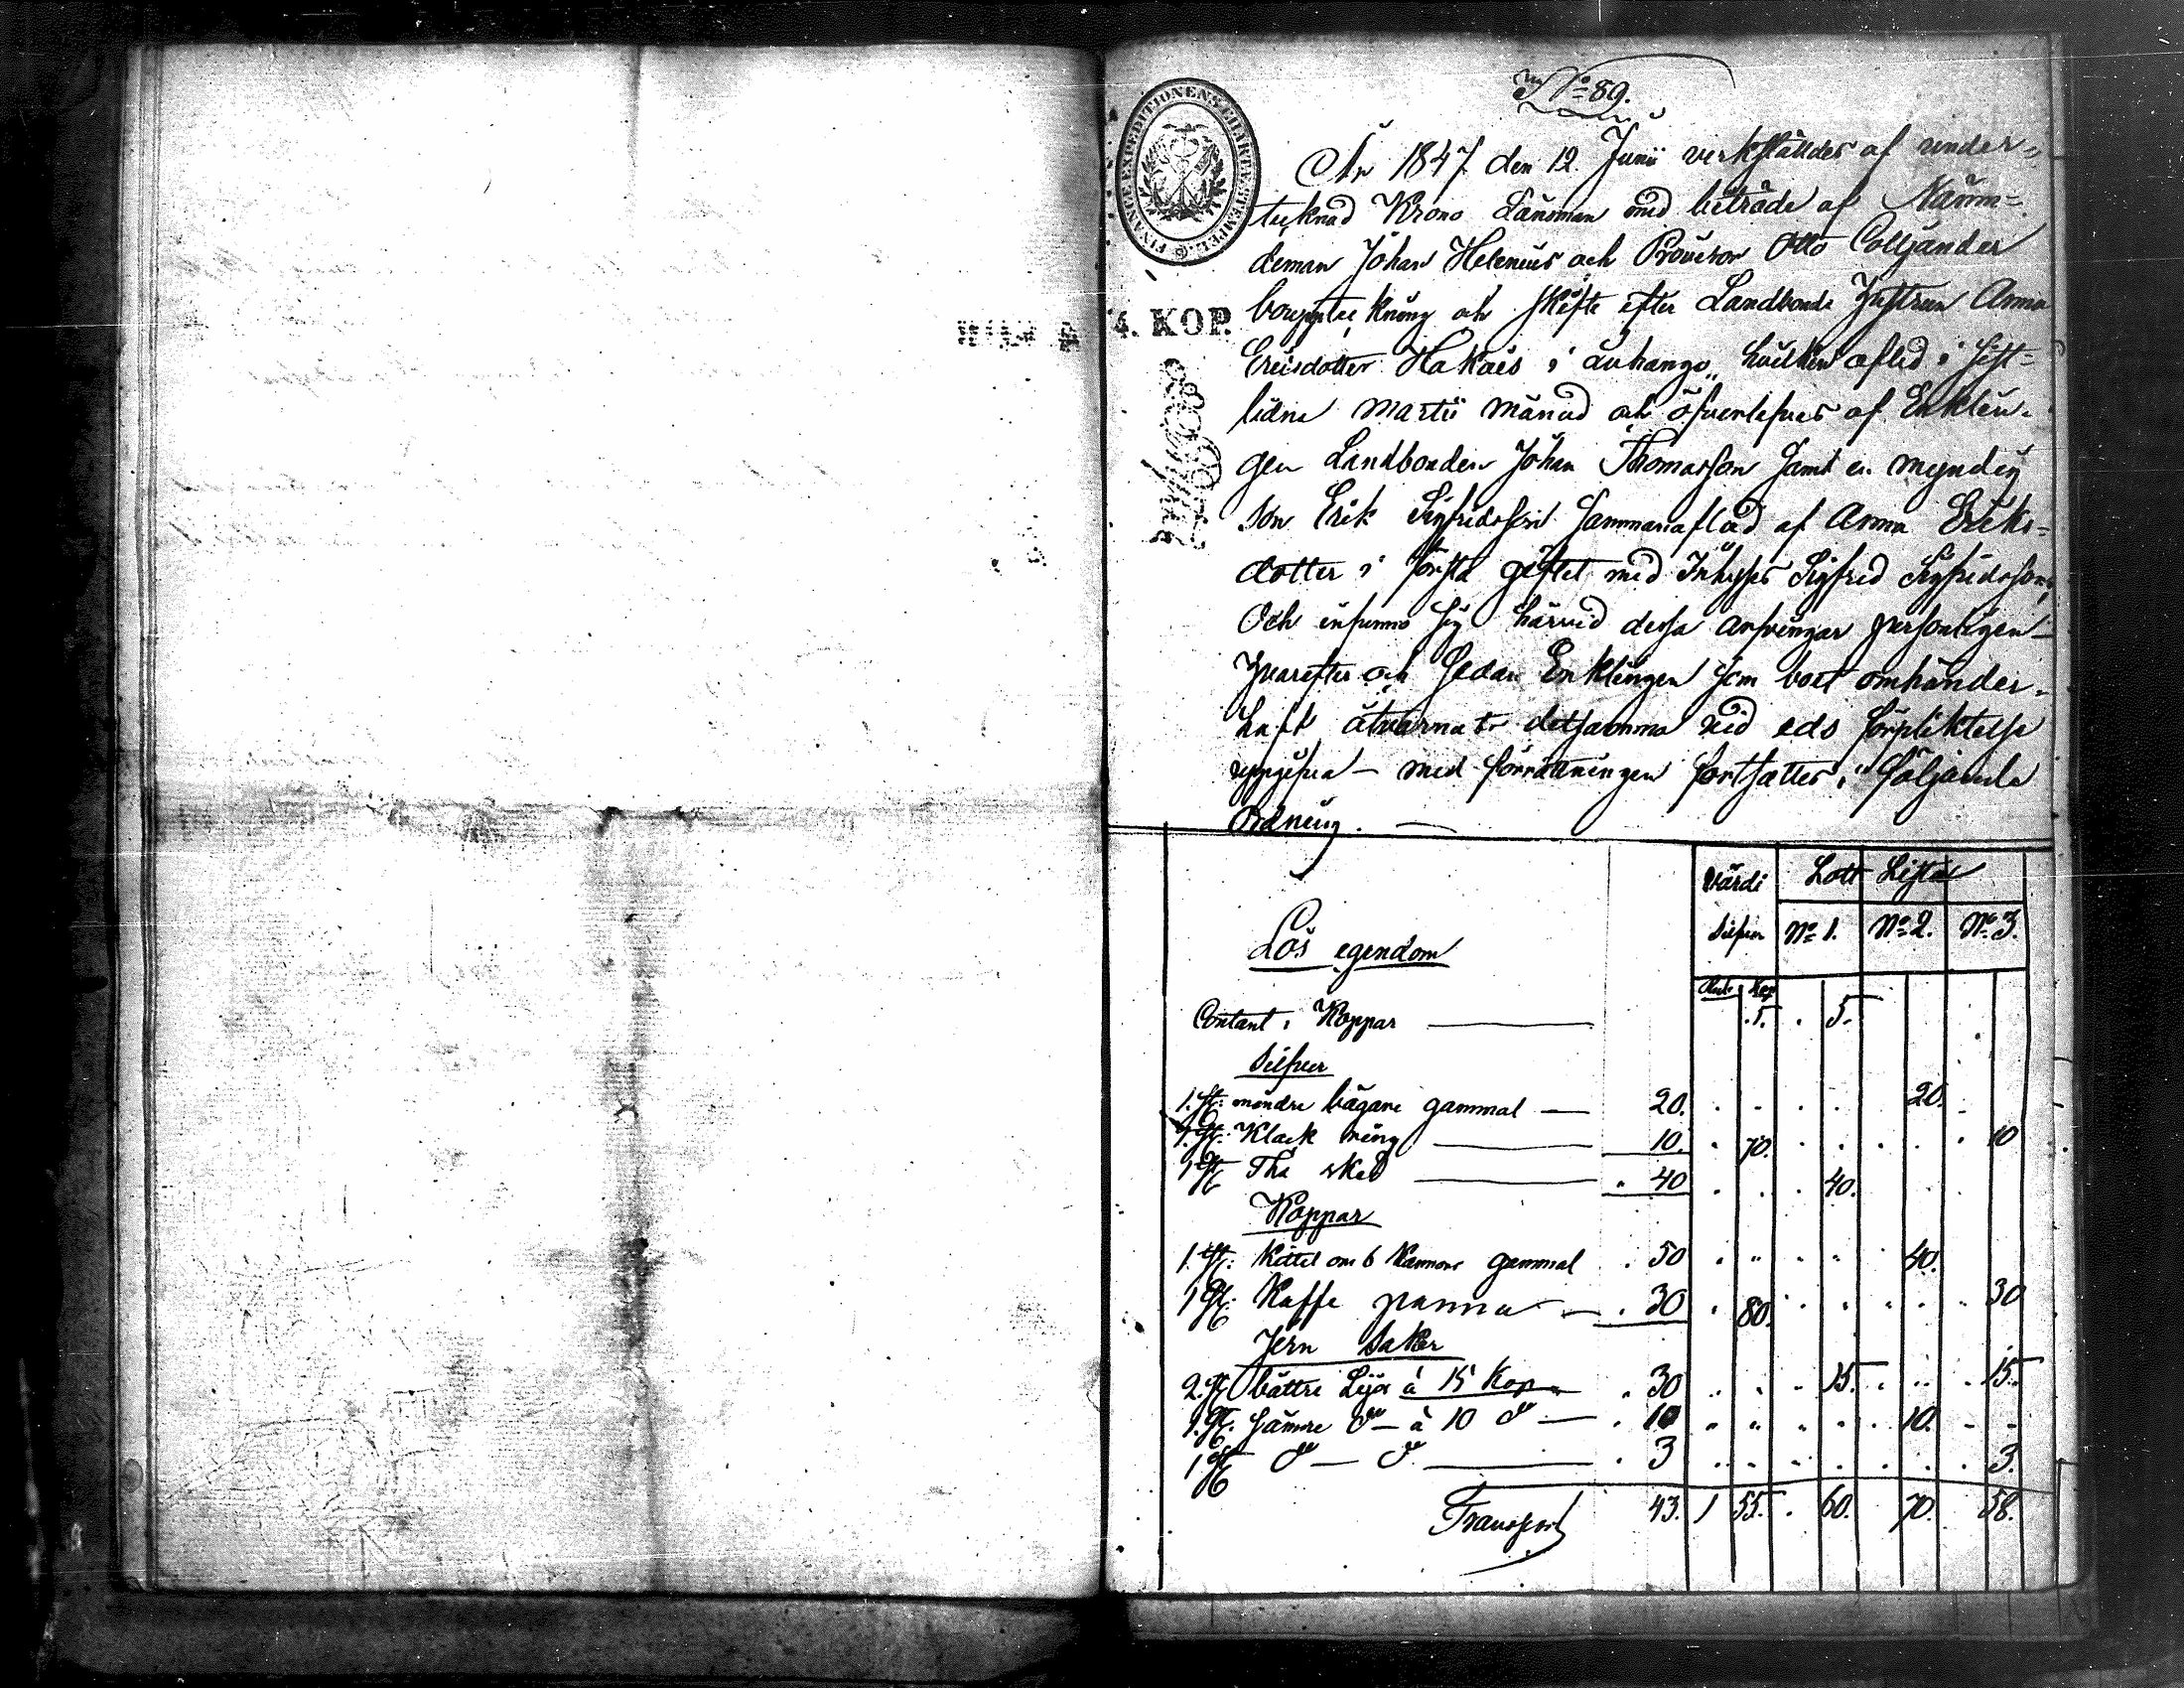 No 89.
FINANCE EXPEDITIONENS CHARTÆ STEMPEL
4. KOP.
År 1847 den 12 Junii verkställdes af under-
tecknad Krono Länsman med biträde af Nämn-
deman Johan Helenius och Provisor Otto Colljander
bouppteckning och skifte efter Landbonde hustrun Anna
Ericsdotter Hakais i hvilken afled i sist-
lidne Martii Månad och öfverlefves af Enklin-
gen Landbonden Johan Thomasson samt en myndig
son Erik Sigfridsson sammanaflad af Anna Eriks-
dotter i första giftet med Inhyses Sigfred Sigfridsson,
Och infunno sig härvid dessa arfvingar personligen –
Hvarefter och sedan Enklingen som boet omhänder-
haft åtvarnats detsamma vid eds förpliktelse
uppgifva – med förrättningen fortsattes i följande
Ordning. —
Värdi Lott Lista
Silfver No 1. No 2. No 3.
Rub. Kop
Lös egendom
Contant i Koppar — .5. . 5.
Silfver
1. st: mindre bägare gammal — 20. . . . . 20.
1. st. Klack ring — 10. . 70. . . . . . 10
1 st Thé sked — . 40 . . . 40.
Koppar
1. st: Kittel om 6 Kannor gammal . 50 . " . " 40.
1 st: Kaffe panna — . 30 . 80. . . . . . 30
Jern Saker
2. st bättre Lijor à 15 Kop — . 30 . . . 15. . . . 15.
1. st. sämre do — à 10 do — . 10 " " . . . 10. - -
1 st do — do — . 3 . . . . . . . 3.
Transport 43. 1 55. . 60. 70. 58.